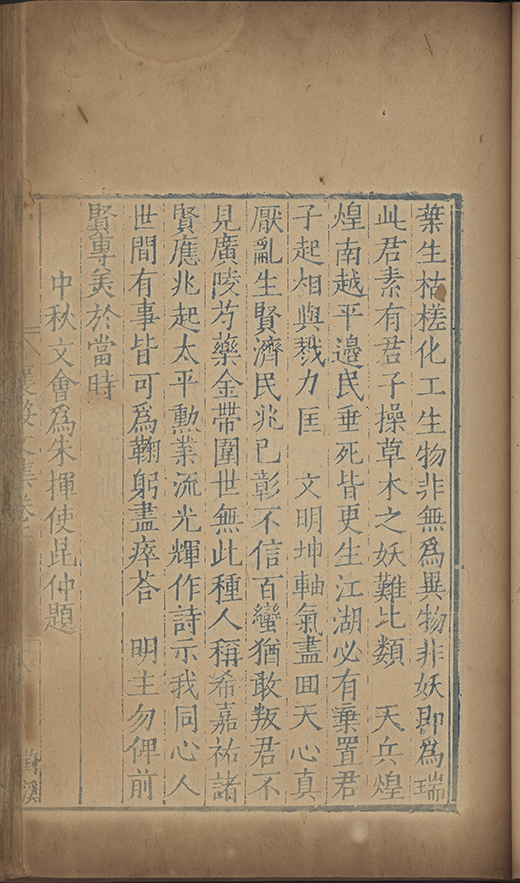 葉生枯槎化工生物非無爲異物非妖即爲瑞
此君素有君子操草木之妖難比類　天兵煌
煌南越平邉民垂死皆更生江湖必有棄置君
子起相與戮力匡　文明坤軸氣盡囬天心真
厭亂生賢濟民兆已彰不信百蠻猶敢叛君不
見廣陵芍藥金帶圍世無此種人稱希嘉祐諸
賢應兆起太平勲業流光輝作詩示我同心人
世間有事皆可爲鞠躬盡瘁荅　明主勿俾前
賢專美於當時
中秋文會爲朱揮使昆仲題
文集卷